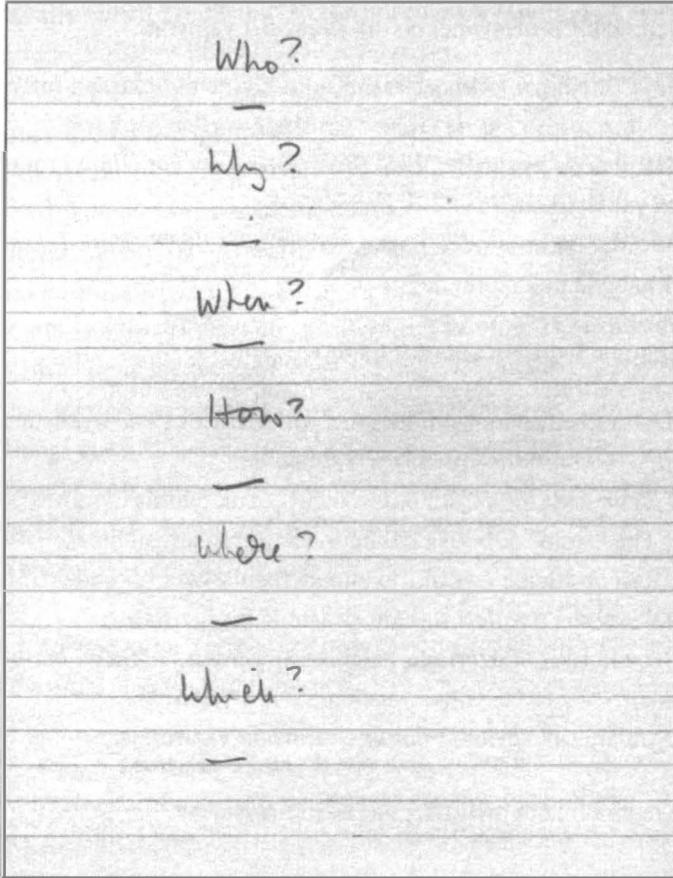 Who?
—
Why?
—
When?
—
How?
—
where?
—
which?
—